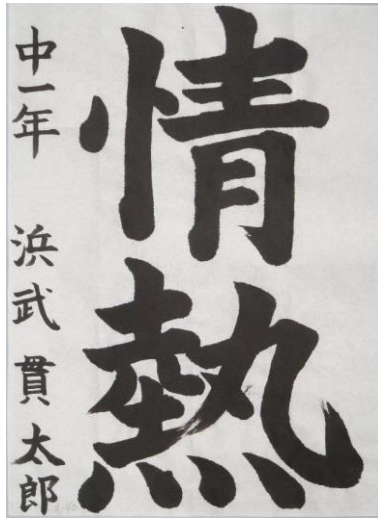 情熱
中一年 浜武貫太郎